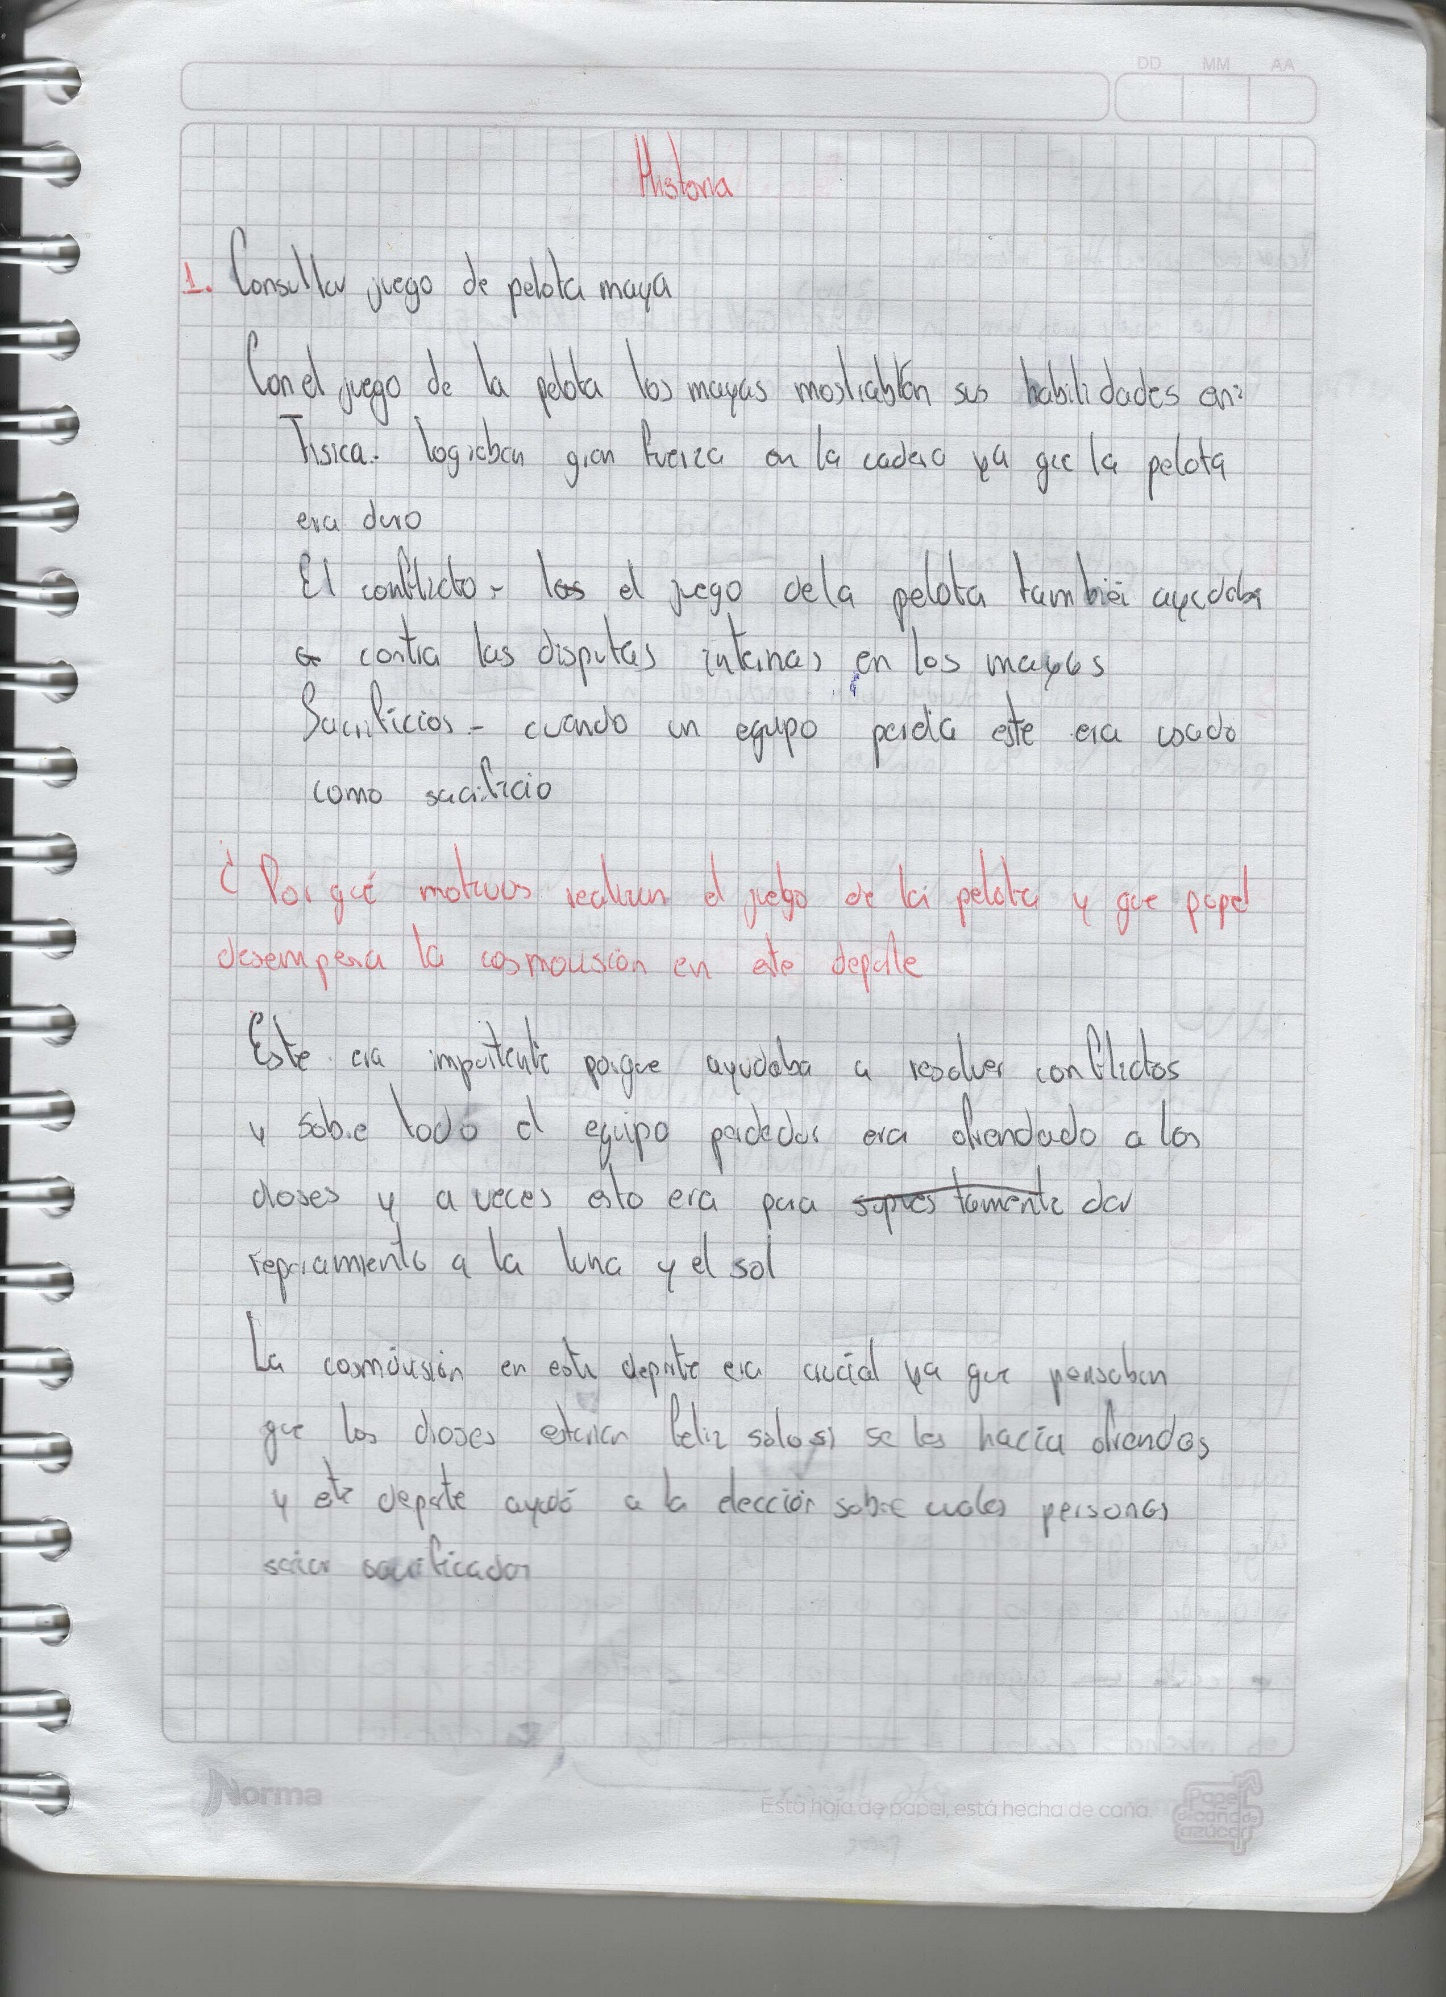 DD MM AA
Historia
1. Consultar juego de pelota maya
Con el juego de la pelota los mayas mostrabán sus habilidades en:
Fisica.- lograban gran fuerza en la cadera ya que la pelota
era duro
El conflicto - los el juego de la pelota también ayudaba
a contra las disputas internas en los mayas
Sacrificios - cuando un equipo perdía este era usado
como sacrificio
¿Por qué motivos realizan el juego de la pelota y que papel
desempeña la cosmovisión en este deporte
Este era importante porque ayudaba a resolver conflictos
y sobre todo el equipo perdedor era ofrendado a los
dioses y a veces esto era para supuestamente dar
repriamiento a la luna y el sol
La cosmóvisión en este deporte era crucial ya que pensaban
que los dioses estarían feliz solo si se les hacía ofrendas
y este deporte ayudó a la elección sobre cuales personas
serían sacrificados
Norma
Está hoja de papel, está hecha de caña.
Papel
de caña de
azúcar